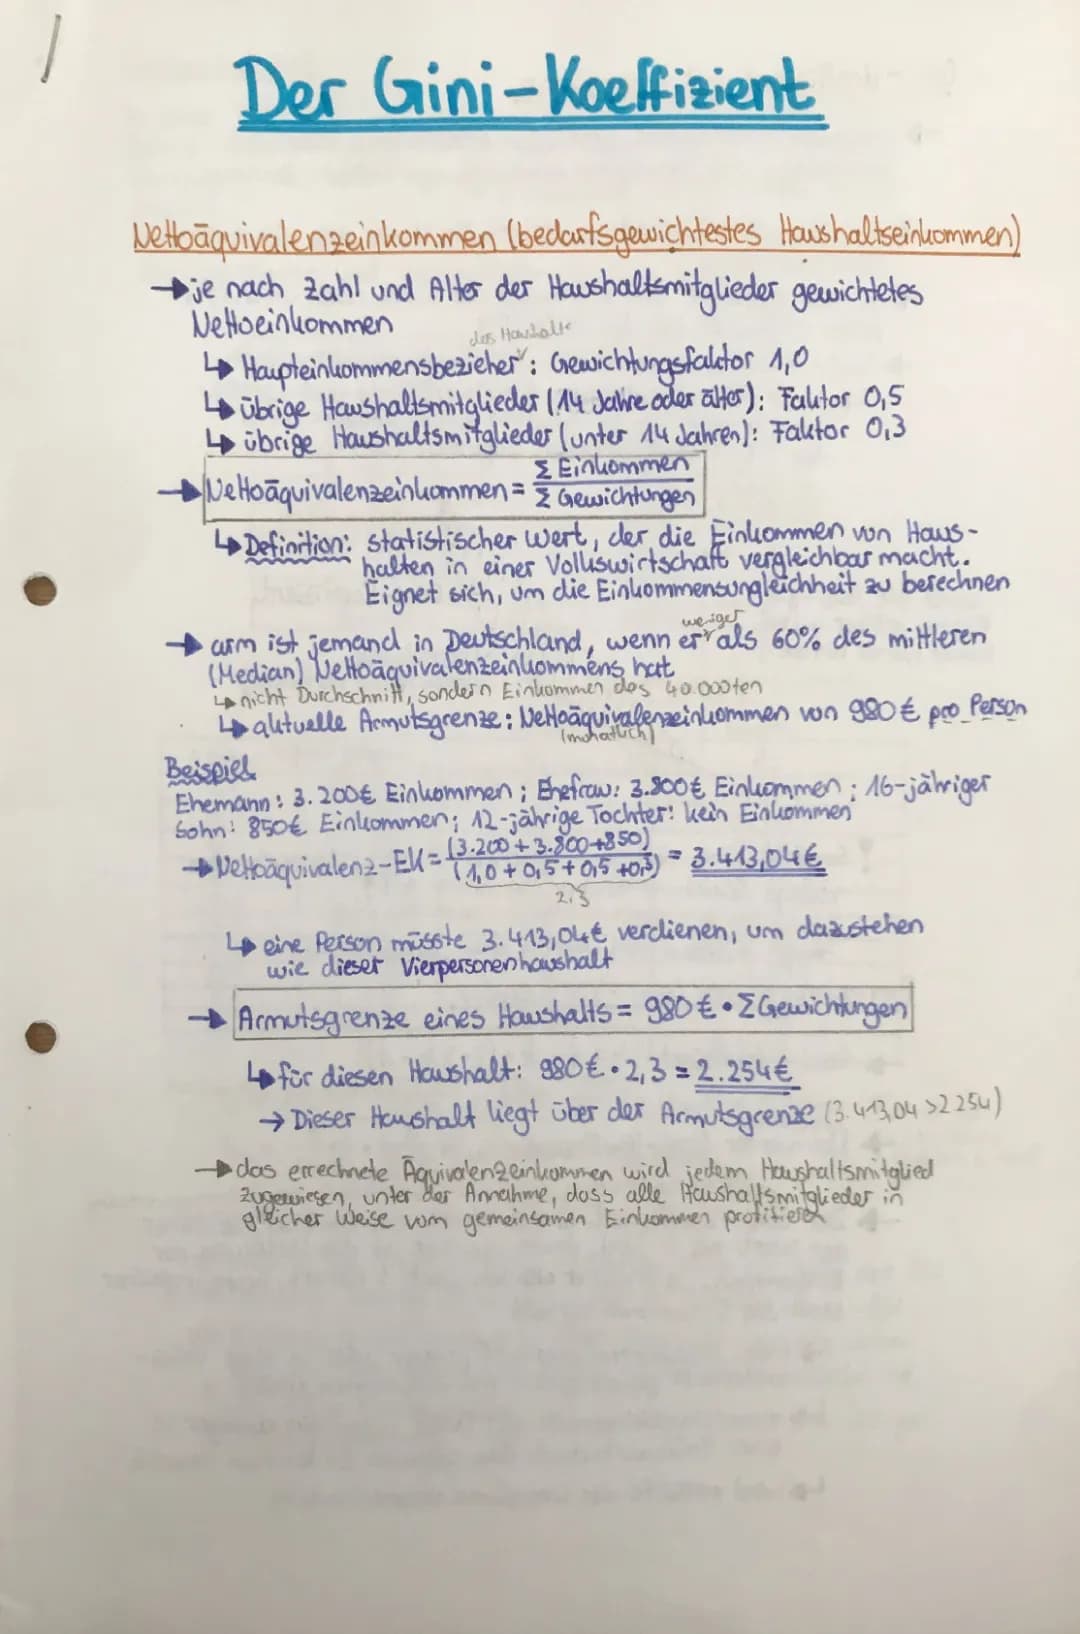 Der Gini-Koeffizient
Nettoäquivalenzeinkommen (bedarfsgewichtestes Haushaltseinkommen)
→ je nach Zahl und Alter der Haushaltsmitglieder gewichtetes
Nettoeinkommen
des Haushalts
↳ Haupteinkommensbezieher: Gewichtungsfaktor 1,0
↳ übrige Haushaltsmitglieder (14 Jahre oder älter): Faktor 0,5
↳ übrige Haushaltsmitglieder (unter 14 Jahren): Faktor 0,3
→ Nettoäquivalenzeinkommen = Σ Einkommen / Σ Gewichtungen
↳ Definition: statistischer Wert, der die Einkommen von Haus-
halten in einer Volkswirtschaft vergleichbar macht.
Eignet sich, um die Einkommensungleichheit zu berechnen
weniger
→ arm ist jemand in Deutschland, wenn er als 60% des mittleren
(Median) Nettoäquivalenzeinkommens hat
↳ nicht Durchschnitt, sondern Einkommen des 40.000ten
↳ aktuelle Armutsgrenze: Nettoäquivalenzeinkommen von 980€ pro Person
(monatlich)
Beispiel
Ehemann: 3.200€ Einkommen; Ehefrau: 3.800€ Einkommen; 16-jähriger
Sohn: 850€ Einkommen; 12-jährige Tochter: kein Einkommen
→ Nettoäquivalenz-EK = (3.200+3.800+850) / (1,0+0,5+0,5+0,3) = 3.413,04€
2,3
↳ eine Person müsste 3.413,04€ verdienen, um dazustehen
wie dieser Vierpersonenhaushalt
→ Armutsgrenze eines Haushalts = 980€ • Σ Gewichtungen
↳ für diesen Haushalt: 980€ • 2,3 = 2.254€
→ Dieser Haushalt liegt über der Armutsgrenze (3.413,04 > 2254)
→ das errechnete Äquivalenzeinkommen wird jedem Haushaltsmitglied
zugewiesen, unter der Annahme, dass alle Haushaltsmitglieder in
gleicher Weise vom gemeinsamen Einkommen profitieren